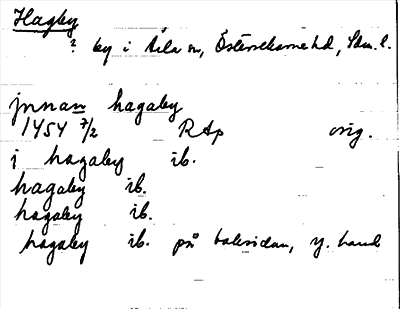 Hagby
? by i Åla sn, Österrekarne hd, Sdm. l.
jnnan hagaby
1454 7/2 RAp orig.
i hagaby ib.
hagaby ib.
hagaby ib.
hagaby ib. på baksidan, y. hand